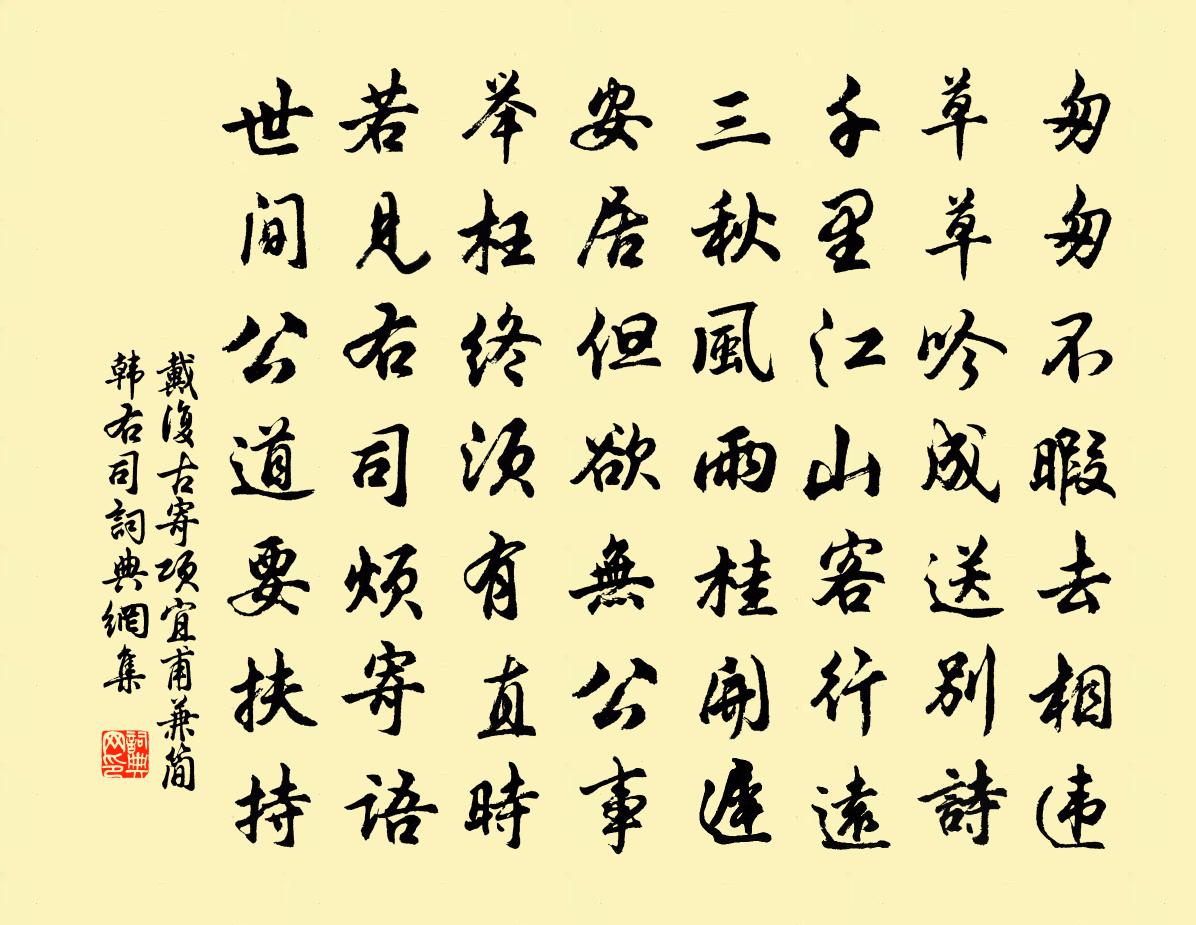 匆匆不暇去相违
草草吟成送别詩
千里江山客行遠
三秋風雨桂開遲
安居但欲無公事
举枉终须有直時
若見右司烦寄語
世间公道要扶持
戴復古寄项宜甫兼简
韩右司詞典網集
詞典
网印